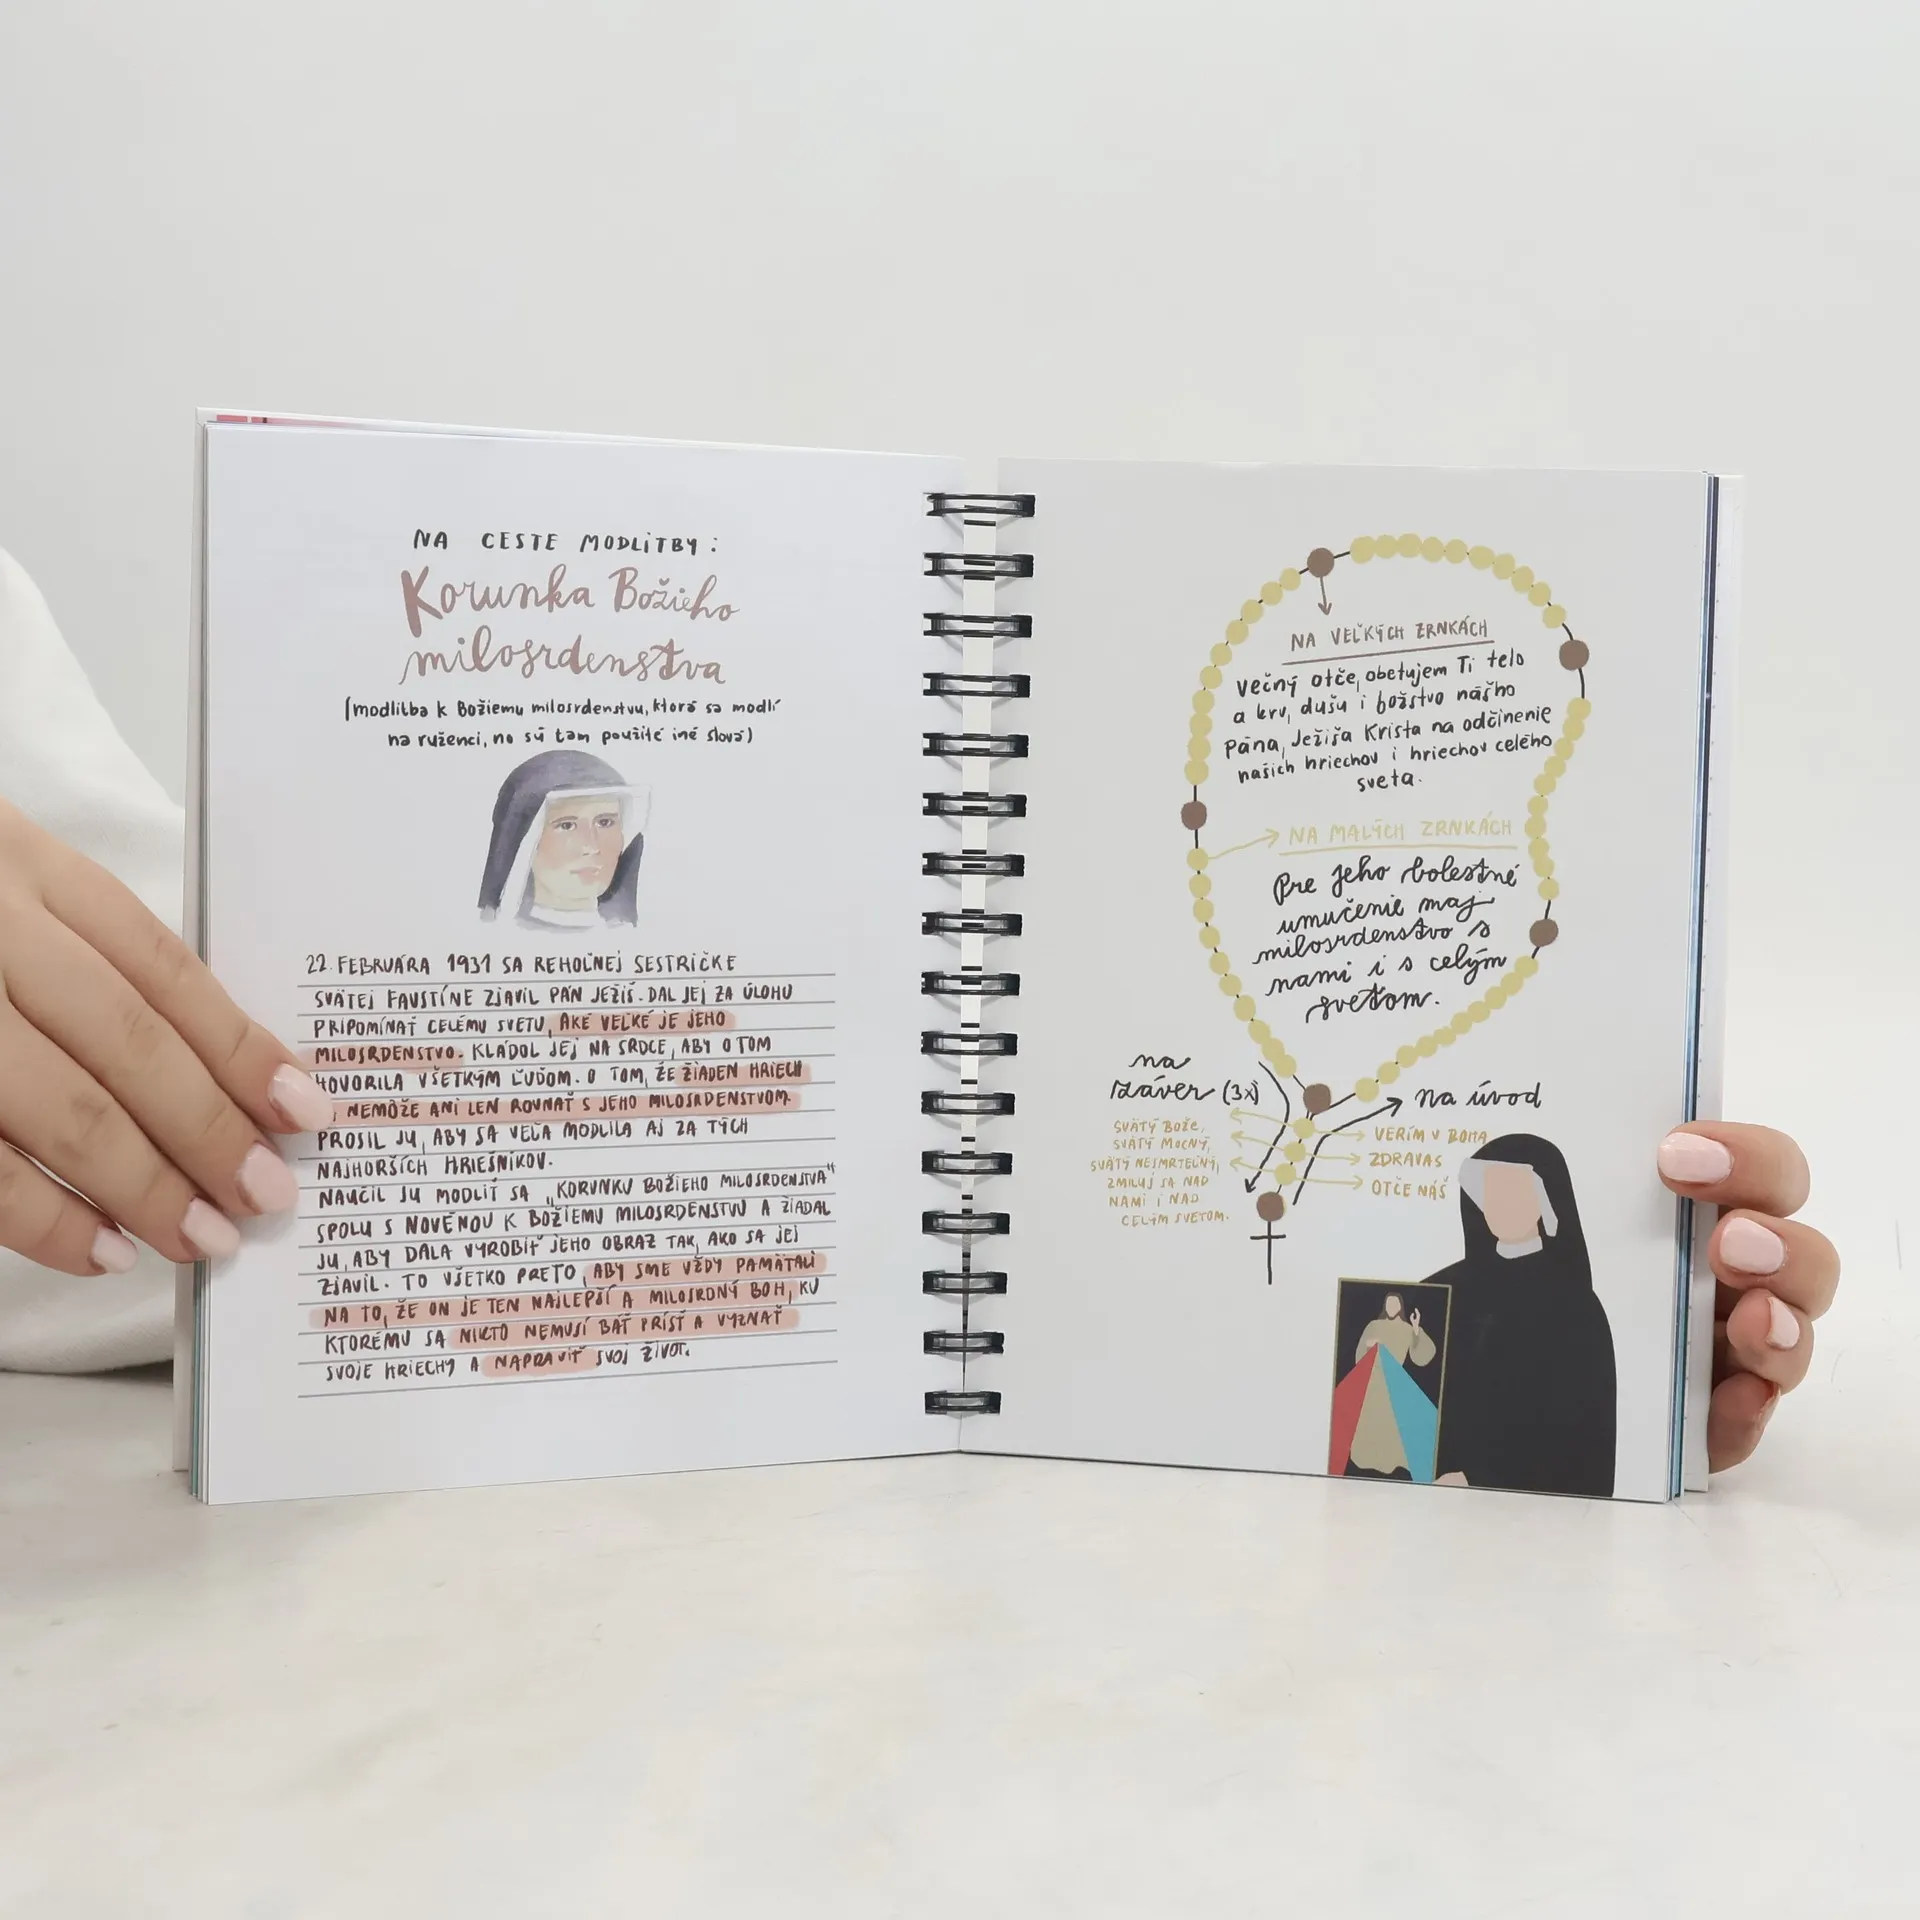 NA CESTE MODLITBY:
Korunka Božieho
milosrdenstva
(modlitba k Božiemu milosrdenstvu, ktorá sa modlí
na ruženci, no sú tam použité iné slová)
22. FEBRUÁRA 1931 SA REHOĽNEJ SESTRIČKE
SVÄTEJ FAUSTÍNE ZJAVIL PÁN JEŽIŠ. DAL JEJ ZA ÚLOHU
PRIPOMÍNAŤ CELÉMU SVETU, AKÉ VEĽKÉ JE JEHO
MILOSRDENSTVO. KLÁDOL JEJ NA SRDCE, ABY O TOM
HOVORILA VŠETKÝM ĽUĎOM. O TOM, ŽE ŽIADEN HRIECH
NEMÔŽE ANI LEN ROVNAŤ S JEHO MILOSRDENSTVOM.
PROSIL JU, ABY SA VEĽA MODLILA AJ ZA TÝCH
NAJHORŠÍCH HRIEŠNIKOV.
NAUČIL JU MODLIŤ SA „KORUNKU BOŽIEHO MILOSRDENSTVA“
SPOLU S NOVÉNOU K BOŽIEMU MILOSRDENSTVU A ŽIADAL
JU, ABY DALA VYROBIŤ JEHO OBRAZ TAK, AKO SA JEJ
ZJAVIL. TO VŠETKO PRETO, ABY SME VŽDY PAMÄTALI
NA TO, ŽE ON JE TEN NAJLEPŠÍ A MILOSRDNÝ BOH, KU
KTORÉMU SA NIKTO NEMUSÍ BÁŤ PRÍSŤ A VYZNAŤ
SVOJE HRIECHY A NAPRAVIŤ SVOJ ŽIVOT.
NA VEĽKÝCH ZRNKÁCH
Večný otče, obetujem Ti telo
a krv, dušu i božstvo nášho
Pána, Ježiša Krista na odčinenie
našich hriechov i hriechov celého
sveta.
NA MALÝCH ZRNKÁCH
Pre jeho bolestné
umučenie maj
milosrdenstvo s
nami i s celým
svetom.
na
záver (3x)
SVÄTÝ BOŽE,
SVÄTÝ MOCNÝ,
SVÄTÝ NESMRTEĽNÝ,
ZMILUJ SA NAD
NAMI I NAD
CELÝM SVETOM.
na úvod
VERÍM V BOHA
ZDRAVAS
OTČE NÁŠ